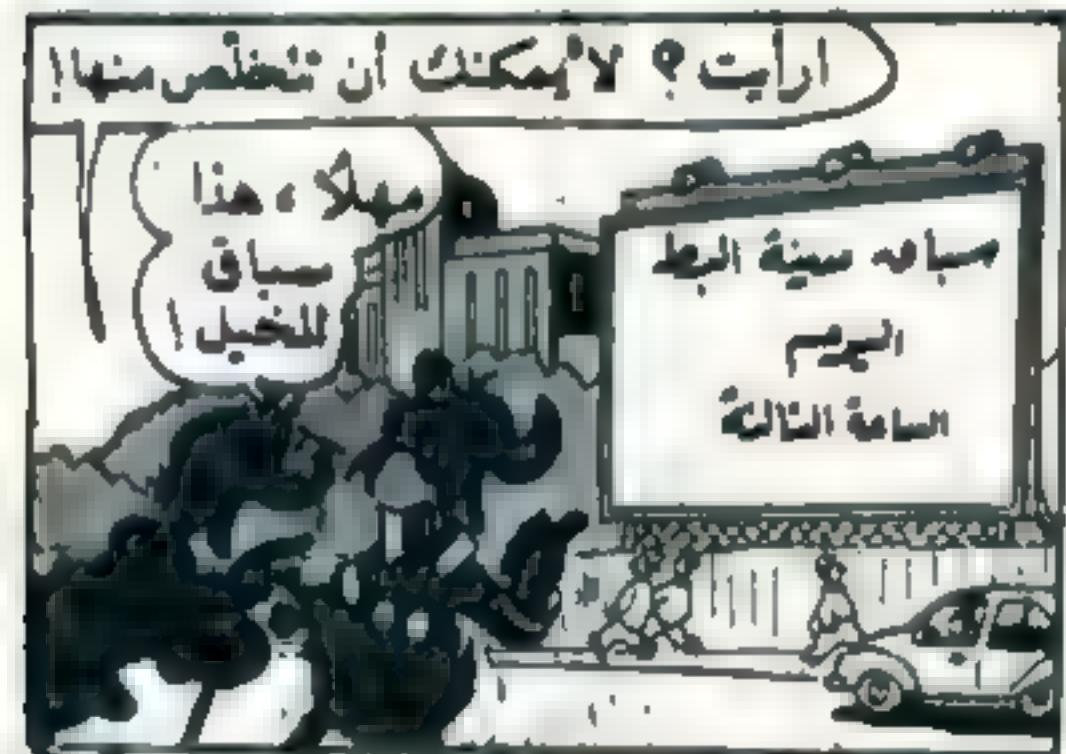 ارأيت؟ لا يمكنك أن تتخلص منها!
مهلا، هذا
سباق
للخيل!
سباق مدينة البط
اليوم
الساعة الثالثة